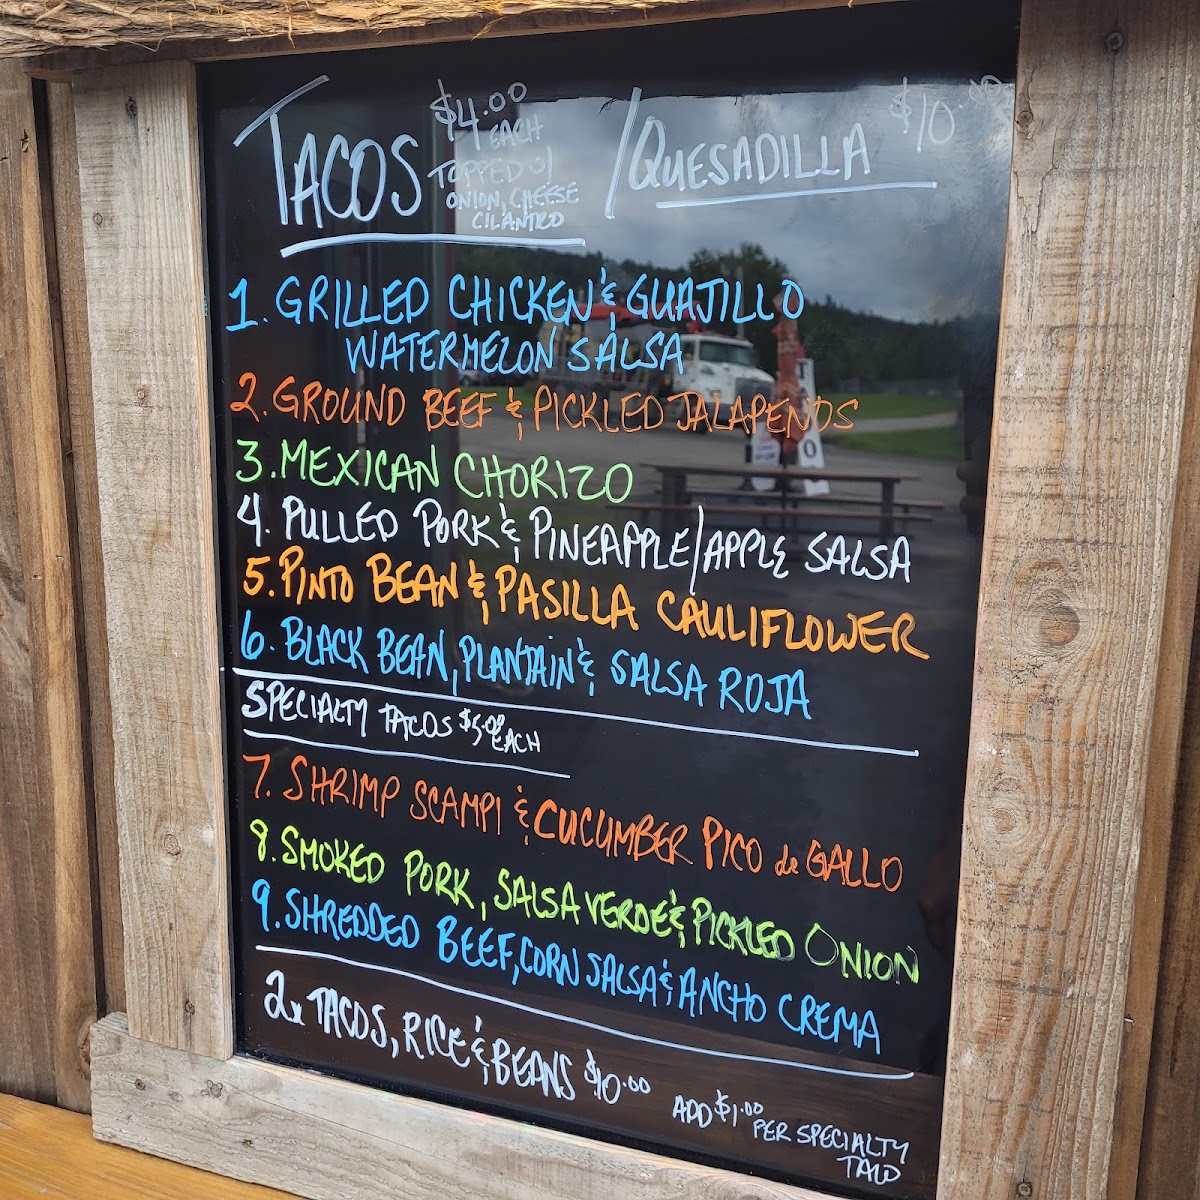 TACOS $4.00 EACH
TOPPED W/
ONION, CHEESE
CILANTRO
/QUESADILLA $10.00
1. GRILLED CHICKEN & GUAJILLO
WATERMELON SALSA
2. GROUND BEEF & PICKLED JALAPENOS
3. MEXICAN CHORIZO
4. PULLED PORK & PINEAPPLE/APPLE SALSA
5. PINTO BEAN & PASILLA CAULIFLOWER
6. BLACK BEAN, PLANTAIN & SALSA ROJA
SPECIALTY TACOS $5.00 EACH
7. SHRIMP SCAMPI & CUCUMBER PICO de GALLO
8. SMOKED PORK, SALSA VERDE & PICKLED ONION
9. SHREDDED BEEF, CORN SALSA & ANCHO CREMA
2x TACOS, RICE & BEANS $10.00
ADD $1.00
PER SPECIALTY
TACO